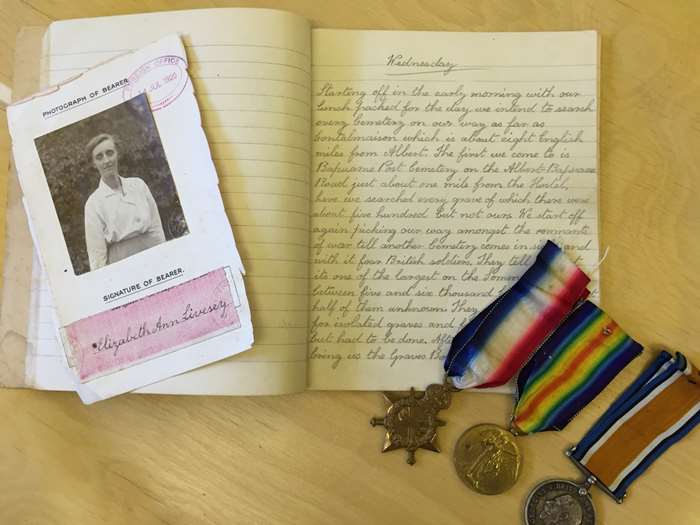 PHOTOGRAPH OF BEARER.
OFFICE
JUL 1920
SIGNATURE OF BEARER.
Elizabeth Ann Livesey
Wednesday
Starting off in the early morning with our
lunch packed for the day we intend to search
every Cemetery on our way as far as
Contalmaison which is about eight English
miles from Albert. The first we come to is
Bapaume Post Cemetery on the Albert-Bapaume
Road just about one mile from the Hostel,
here we searched every grave of which there were
about five hundred but not ours. We start off
again picking our way amongst the remnants
of war till another Cemetery comes in sight and
with it four British soldiers. They tell
its one of the largest on the Somme
between five and six thousand
half of them unknown. They
for isolated graves and
but had to be done.
bring us the Graves